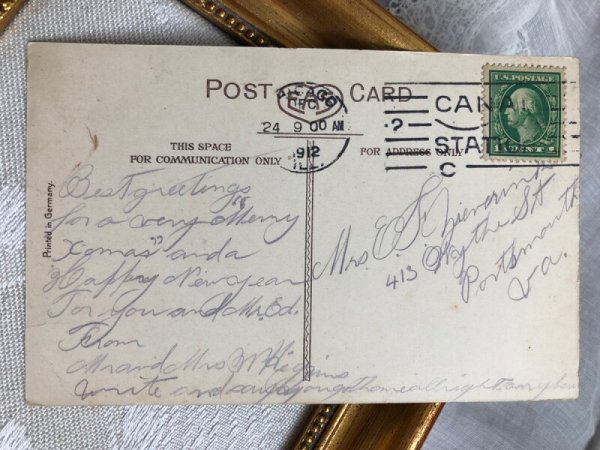 POST CARD
CHICAGO
DEC
24 9 00 AM
1912
ILL.
CANAL
STATION
C
U.S. POSTAGE
1 CENT 1
THIS SPACE
FOR COMMUNICATION ONLY
FOR ADDRESS ONLY
Printed in Germany.
Best greetings
for a very "Merry
Xomas" and a
Happy New year
For you and Mr. Ed.
From
Mr and Mrs Higgins
write and say you got home all right anyhow
Mrs E.
413 Wythe St
Portsmouth
Va.